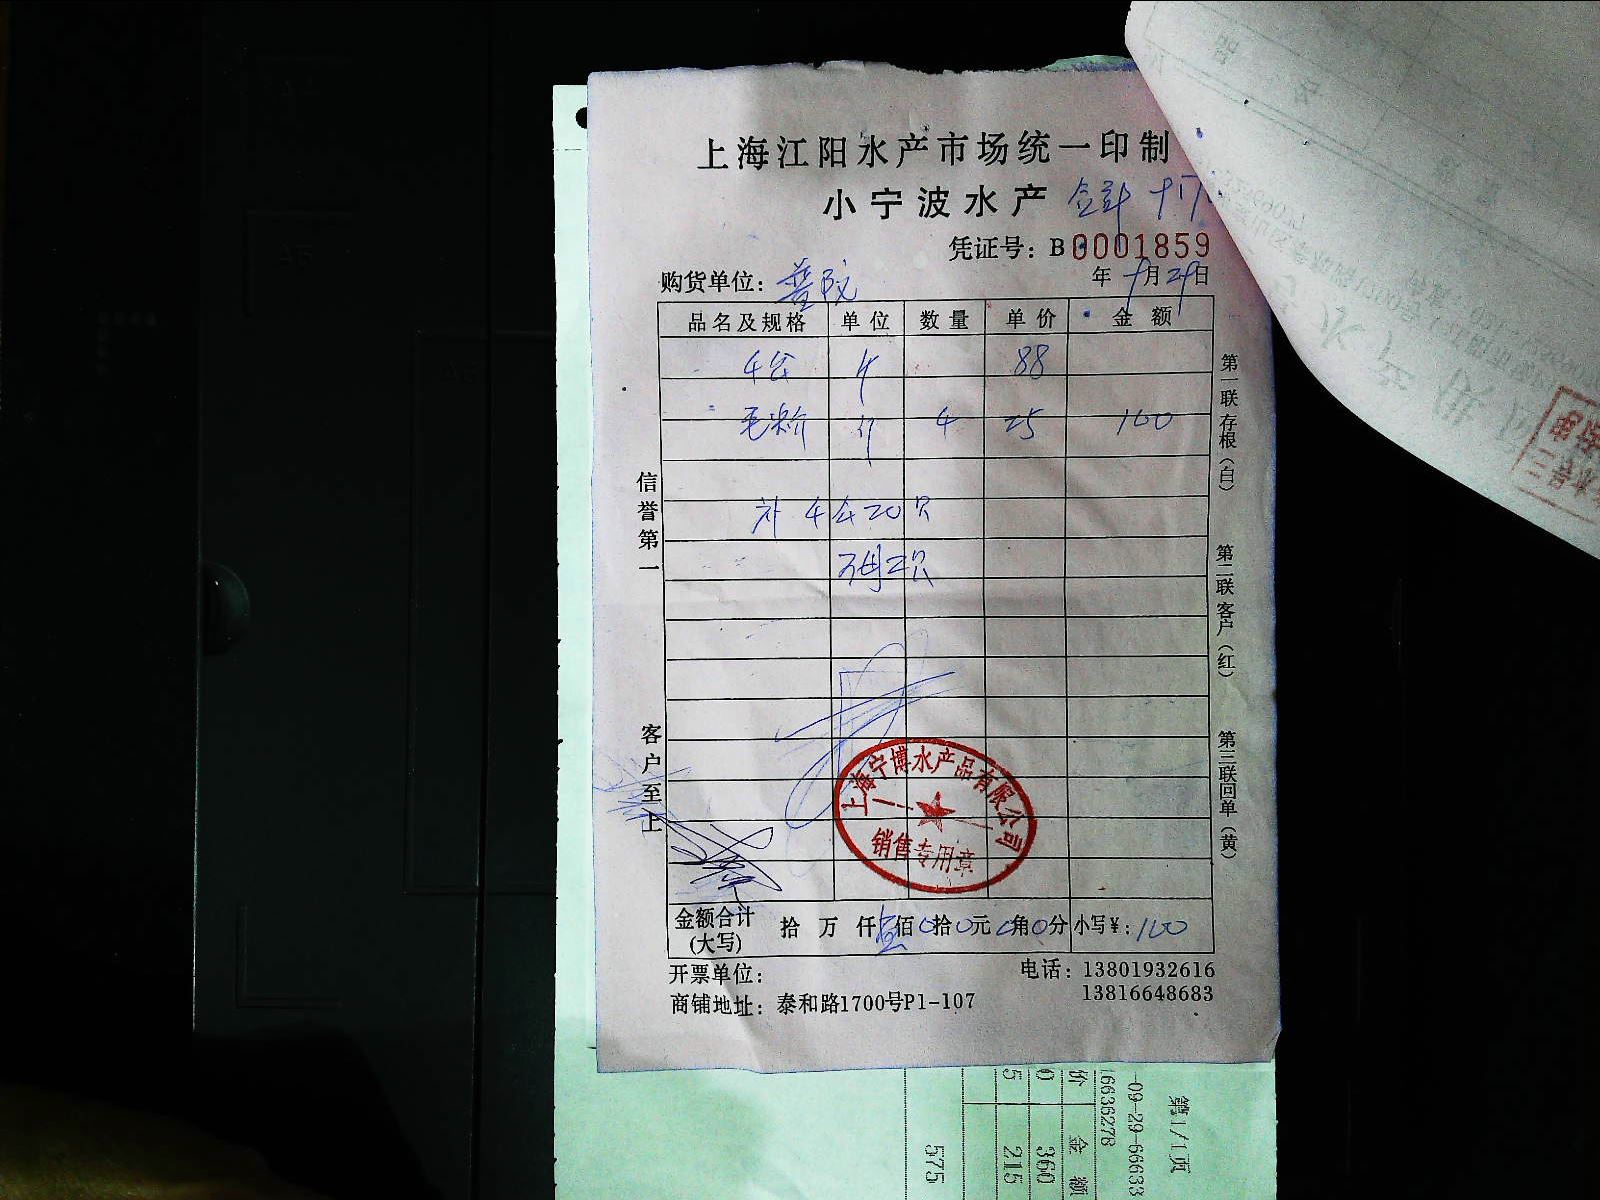 上海江阳水产市场统一印制
小宁波水产
凭证号：B0001859
购货单位：普陀 年9月29日
品名及规格 单位 数量 单价 金额
4公 斤 88
毛 斤 4 25 100
补 4公 20只
4母 2只
信誉第一
客户至上
第一联 存根（白）
第二联 客户（红）
第三联 回单（黄）
上海宁博水产品有限公司
销售专用章
金额合计(大写) 拾 万 仟 壹佰 0拾 0元 0角 0分 小写¥：100
开票单位： 电话：13801932616
13816648683
商铺地址：泰和路1700号P1-107
第1/1页
-09-29-66633
16636278
价 金 额
0 360
5 215
575